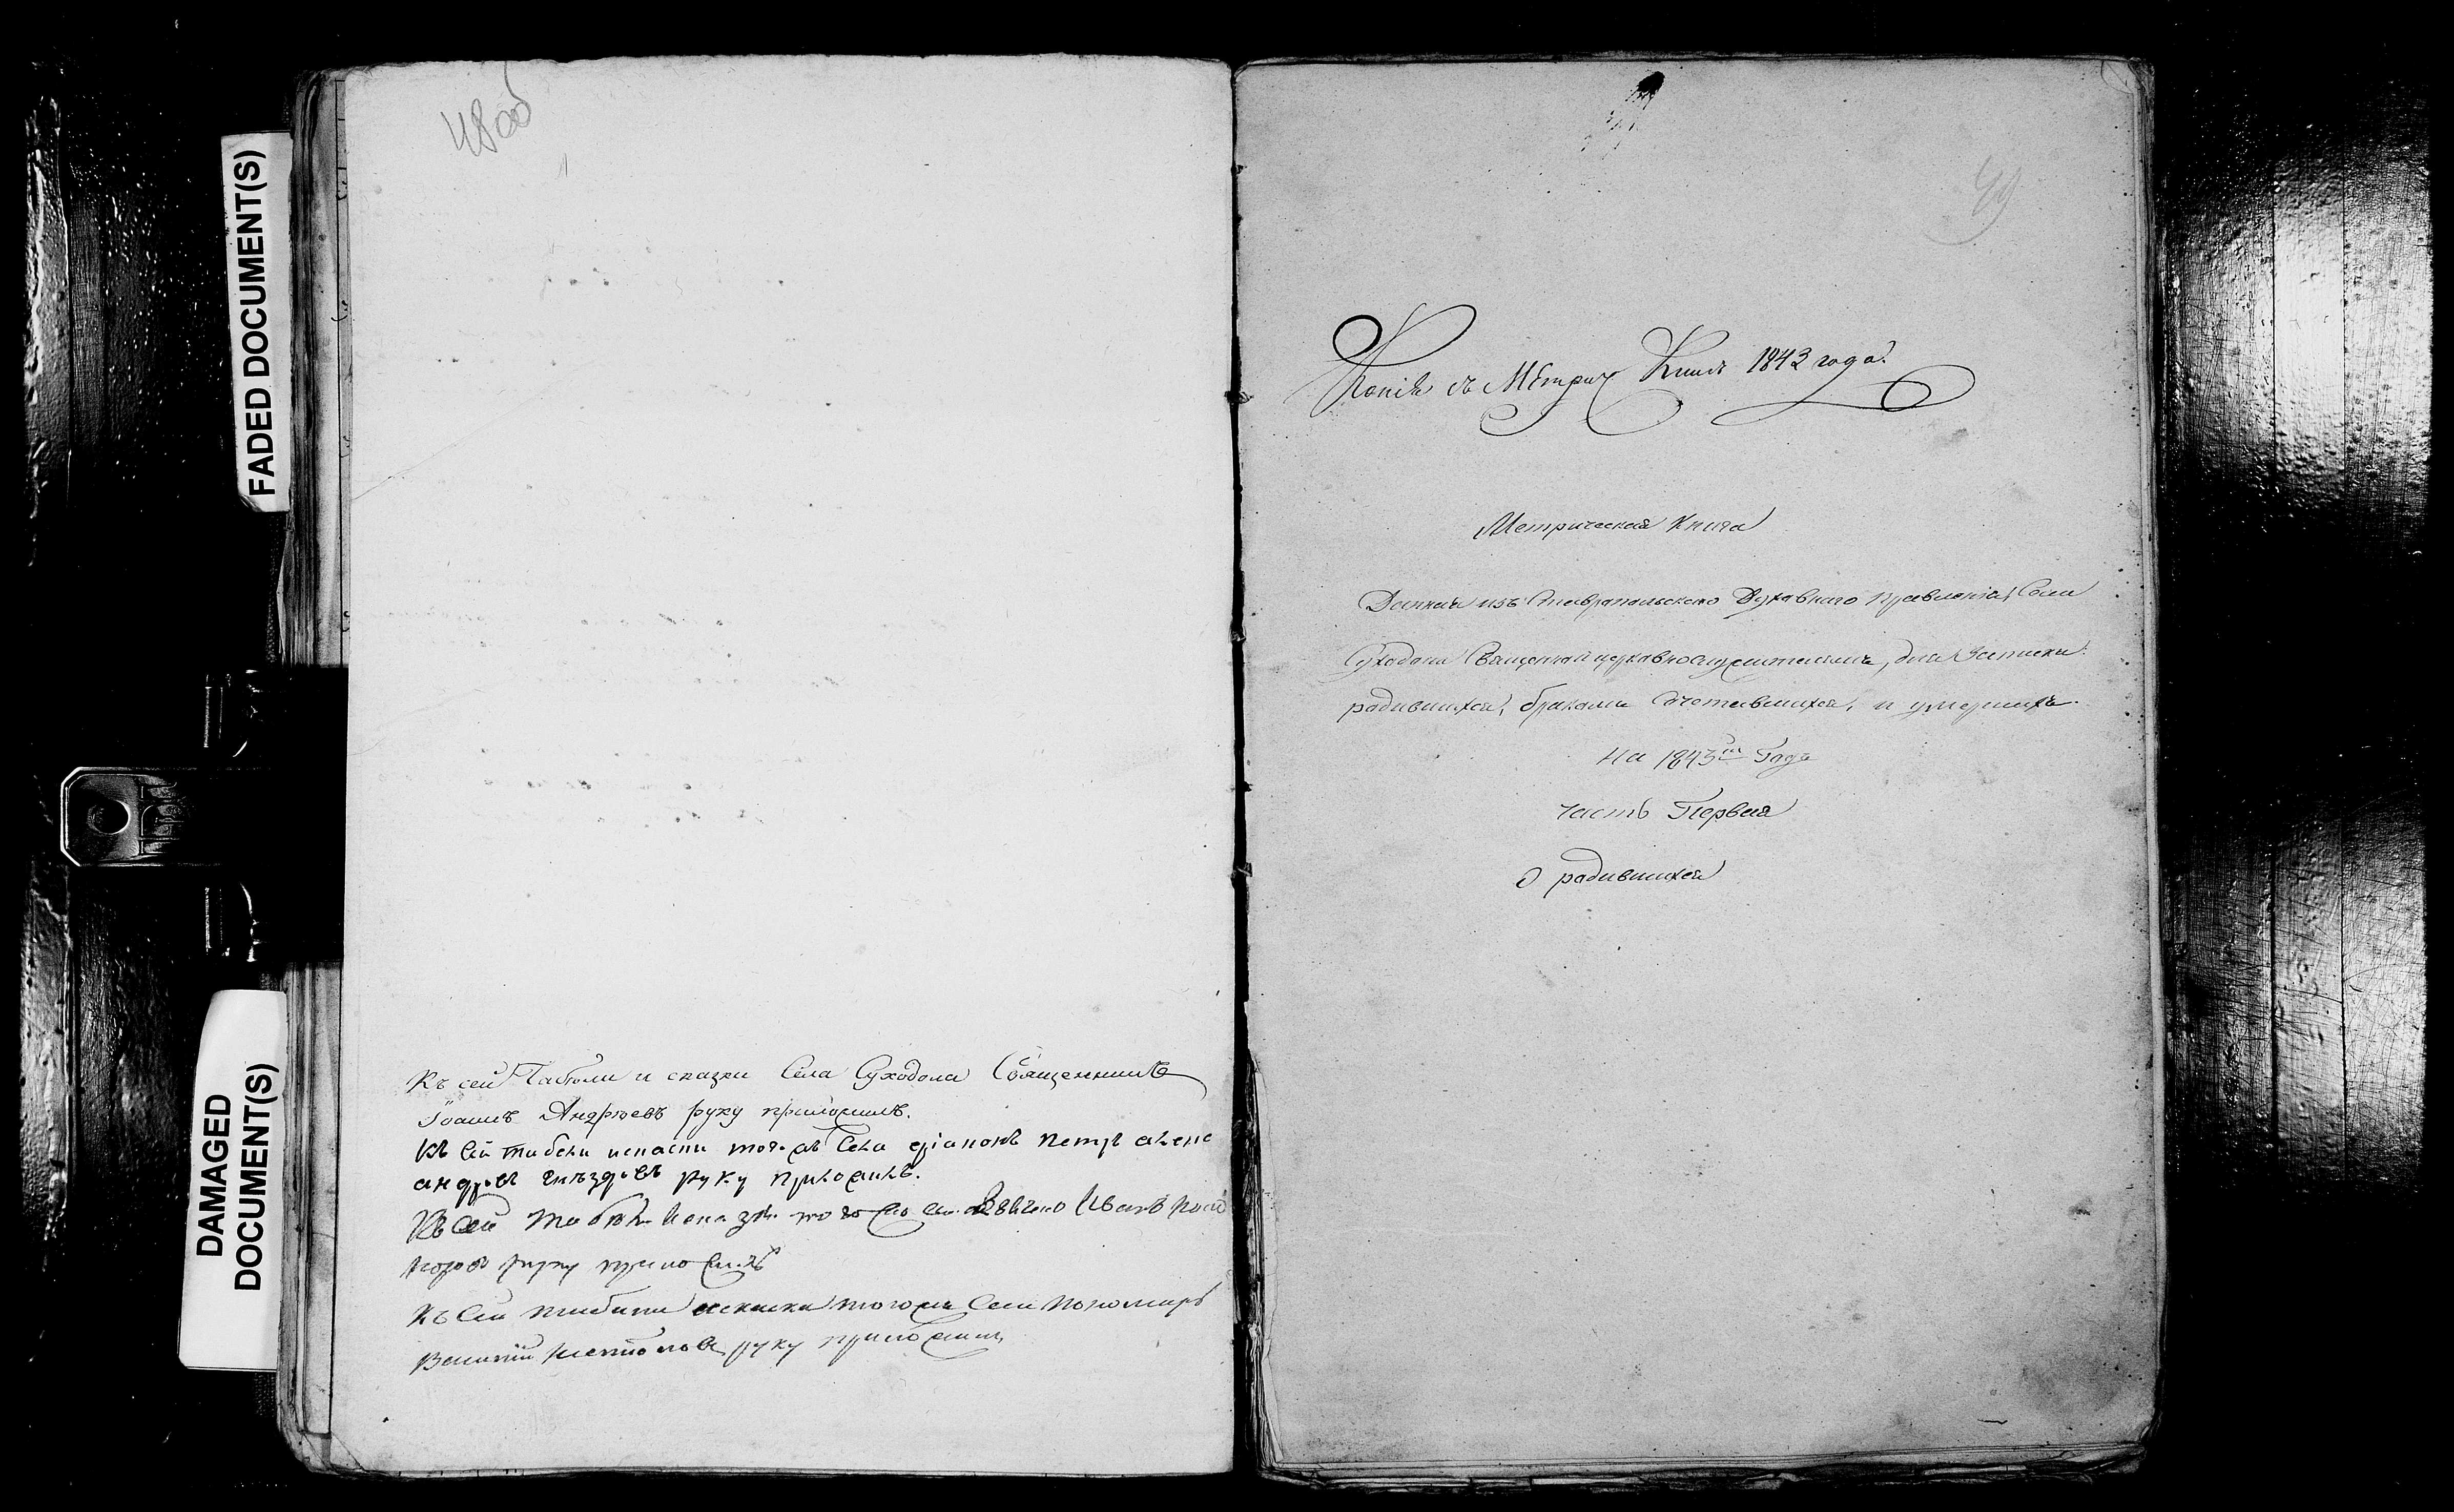 FADED DOCUMENT(S)
DAMAGED
DOCUMENT(S)
48 об
Къ сей Табели и сказки Села Суходола Священникъ
Іоаннъ Андреевъ руку приложилъ.
Къ сей табели и сказки тогожъ Села діаконъ Петръ Алекс
андровъ Гнѣздовъ руку приложилъ.
Къ сей табѣли и сказкѣ того же Села Иванъ
руку приложилъ
Къ сей табели и сказки тогожъ Села пономарь
Василій руку приложилъ
49
Копія съ Метрич Книги 1843 года.
Метрическая Книга
Данная изъ Ставропольскаго Духовнаго Правленія, Села
Суходола Священноицерковнослужителямъ, для записки
родившихся, бракомъ сочетавшихся, и умершихъ.
на 1843й Годъ
часть Первая
О родившихся